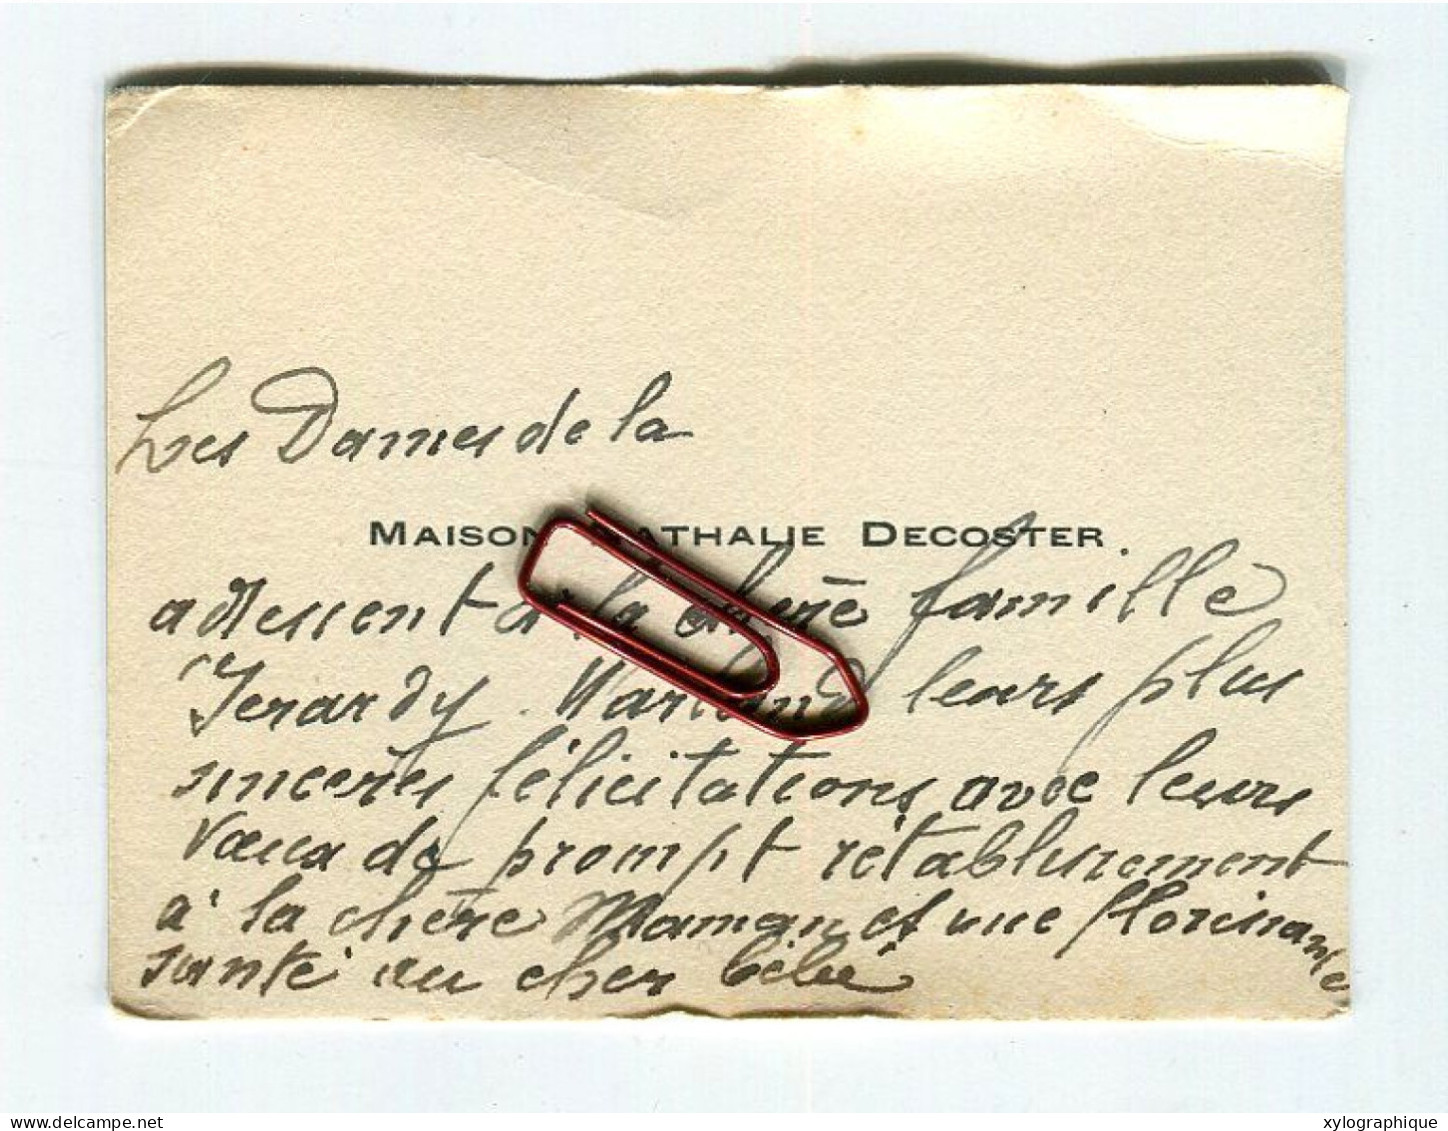 Les Dames de la
MAISON NATHALIE DECOSTER
adressent à la chère famille
Jerardy leurs plus
sincères félicitations avec leurs
vœux de prompt rétablissement
à la chère Maman et une florissante
santé au cher bébé
delcampe.net
xylographique